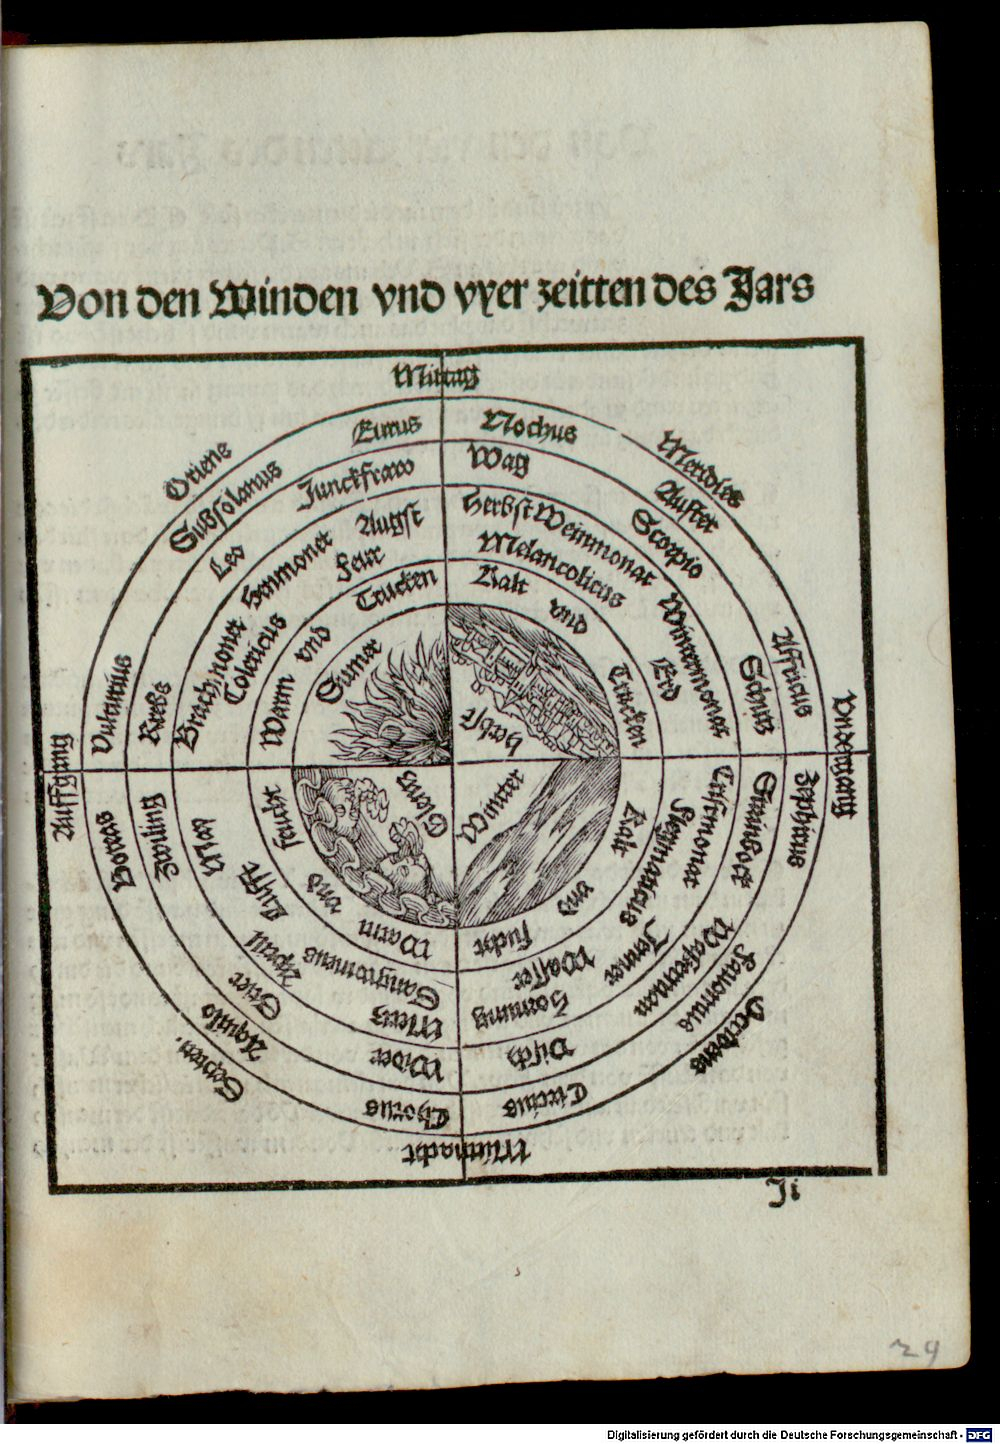 Von den Winden vnd vyer zeitten des Jars
Mittag
Oriens
Meridies
Eurus
Nochus
Subsolanus
Auster
Vulturnus
Affricus
Junckfraw
Wag
Leo
Scorpio
Krebs
Schütz
Augst
Herbst Weinmonat
Hewmonet
Wintermonat
Brachmonet
Feur
Melancolicus
Colericus
Erd
Warm vnd Trucken
Kalt vnd Trucken
Sumer
Herbst
Auffgang
Vndergang
Glentz
Wintter
Feucht vnd Warm
Kalt vnd Fucht
Lufft
Sangwineus
Flegmaticus
Wasser
May
Aprill
Mertz
Cristmonat
Jenner
Hornung
Zwiling
Stier
Wider
Steinbock
Wasserman
Visch
Boreas
Aquilo
Chorus
Zephirus
Fauonius
Circius
Septen.
Occidens
Mitnacht
Ji
29
Digitalisierung gefördert durch die Deutsche Forschungsgemeinschaft - DFG